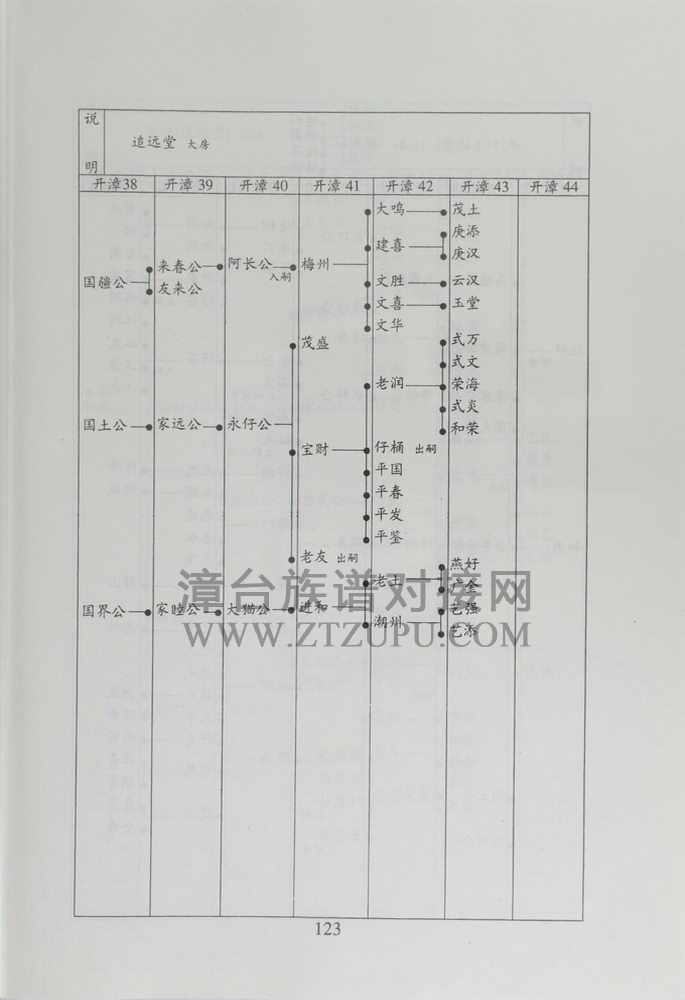 说明
追远堂 大房
开漳38 开漳 39 开漳 40 开漳 41 开漳 42 开漳 43 开漳 44
大鸣 茂土
庚添
建喜
庚汉
来春公 阿长公 入嗣 梅州
国疆公
友来公
文胜 云汉
文喜 玉堂
文华
茂盛 式万
式文
老润 荣海
式炎
国土公 家远公 永仔公 和荣
宝财 仔桶 出嗣
平国
平春
平发
平鉴
老友 出嗣
燕好
老土
广金
国界公 家睦公 大猫公 进和 艺强
潮州
艺添
漳台族谱对接网
WWW.ZTZUPU.COM
123